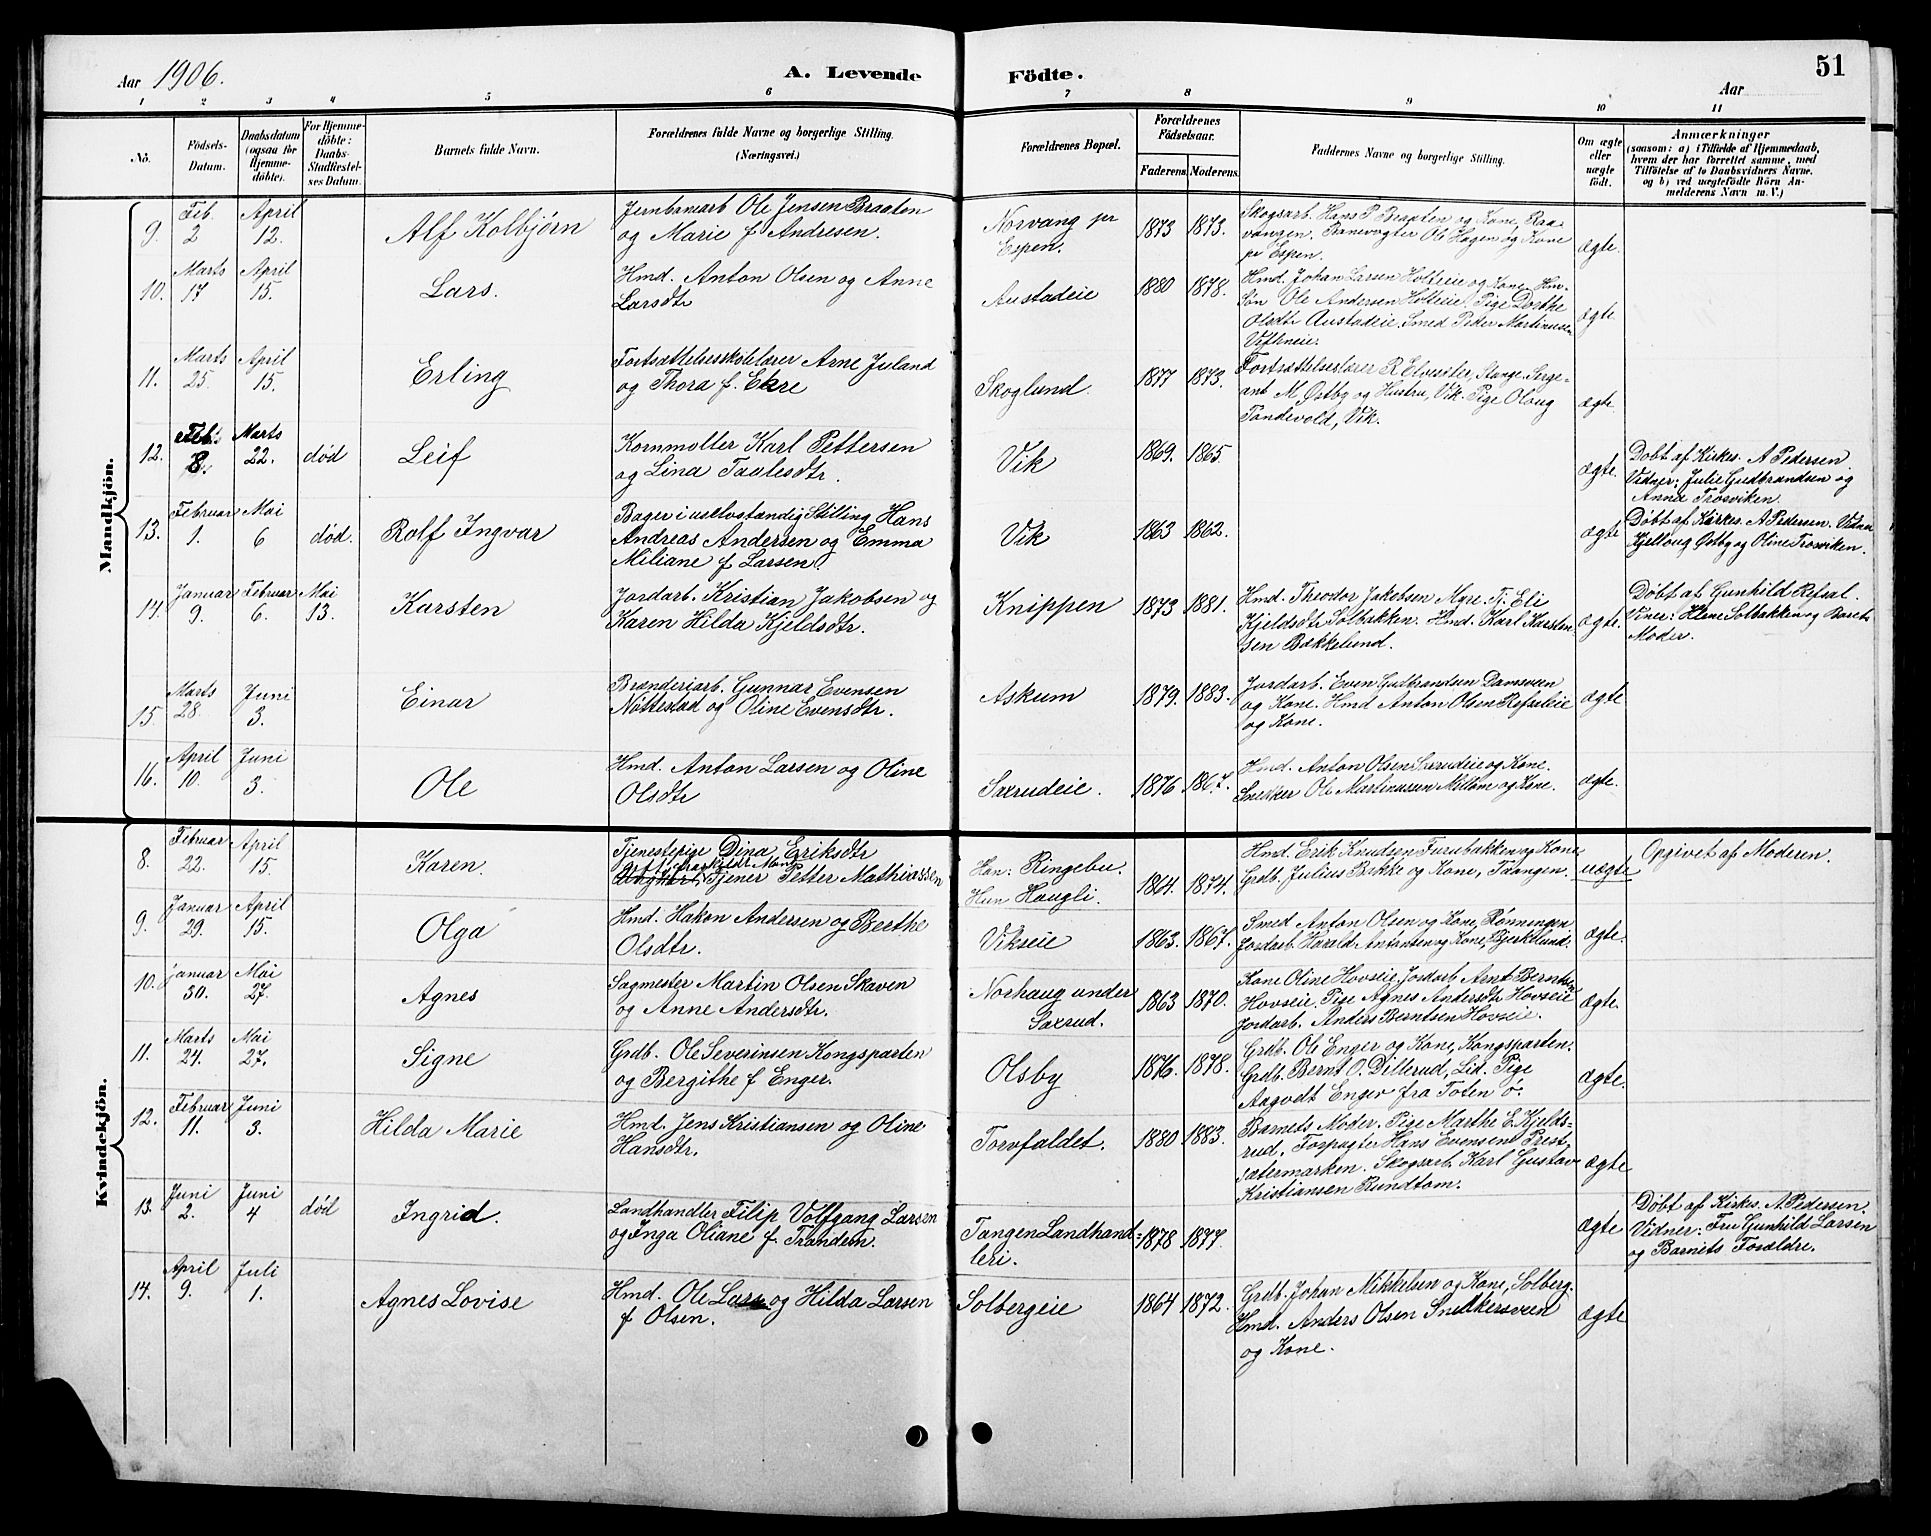 Aar 1906.
A. Levende Födte.
Aar
51
1 2 3 4 5 6 7 8 9 10 11
No.
Födsels-Datum.
Daabsdatum (ogsaa for Hjemmedöbte).
For Hjemmedöbte: Daabs-Stadfæstelses Datum.
Barnets fulde Navn.
Forældrenes fulde Navne og borgerlige Stilling. (Næringsvei.)
Forældrenes Bopæl.
Forældrenes Födselsaar.
Faderens. Moderens.
Faddernes Navne og borgerlige Stilling.
Om ægte eller uægte födt.
Anmærkninger
(saasom: a) i Tilfælde af Hjemmedaab, hvem der har forrettet samme, med Tilföielse af to Daabsvidners Navne, og b) ved uægtefödte Börn Anmelderens Navn m. V.)
Mandkjön.
9. Feb. 2 April 12. Alf Kolbjørn
Jernbanearb Ole Jensen Braaten
og Marie f. Andresen.
Norvang pr
Espen.
1873 1873.
Skogsarb. Hans P Braaten og Kone, Raa-
vangen. Banevogter Ole Hagen og Kone
pr Espen.
ægte.
10. Marts 17 April 15. Lars.
Hmd. Anton Olsen og Anne
Larsdtr
Austadeie
1880 1878.
Hmd. Johan Larsen Holteie og Kone. Hm-
søn Ole Andersen Holteie. Pige Dorthe
Olsdtr Austadeie. Smed Peder Martinussen
ægte.
11. Marts 25. April 15. Erling
Fortsættelsesskolelærer Arne Juland
og Thora f. Ekre
Skoglund
1877 1873.
Fortsættelseslærer R Elveseter, Stange. Serge-
ant M Østby og Hustru, Vik. Pige Oloug
Tandevold, Vik.
ægte.
12. Feb. 8. Marts 22. død Leif
Kornmoller Karl Pettersen
og Lina Taalesdtr.
Vik
1869. 1865.
ægte.
Dobt af Kirkes. A Pedersen.
Vidner: Julie Gudbrandsen og
Anna Trosviken.
13. Februar 1. Mai 6 død. Rolf Ingvar
Bager i uselvstændig Stilling Hans
Andreas Andersen og Emma
Miliane f Larsen.
Vik
1863 1862.
ægte
Døbt af Kirkes. A Pedersen. Vidne
Kjelloug Østby og Oline Trosviken.
14. Januar 9. Februar 6. Mai 13. Karsten
Jordarb. Kristian Jakobsen og
Karen Hilda Kjeldsdtr.
Knippen
1873 1881.
Hmd. Theodor Jakobsen Myre. Tj. Eli
Kjeldsdtr Solbakken. Hmd. Karl Karsten-
sen Bakkelund.
ægte.
Døbt af Gunhild Refsal.
Viner: Helene Solbakken og Barets
Moder.
15. Marts 28. Juni 3. Einar
Brænderiarb. Gunnar Evensen
Nøttestad og Oline Evensdtr.
Askum
1879. 1883.
Jordarb. Even Gudbrandsen Damsveen
og Kone. Hmd Anton Olsen Refsaleie
og Kone.
ægte
16. April 10. Juni 3. Ole
Hmd. Anton Larsen og Oline
Olsdtr
Saxrudeie.
1876 1867.
Hmd. Anton Olsen Saxrudeie og Kone.
Snekker Ole Martinussen Mellom og Kone.
ægte.
Kvindekjön.
8. Februar 22. April 15. Karen.
Tjenestepige Dina Eriksdtr
Tjener Petter Mathiassen
Han: Ringebu.
Hun Haugli.
1864. 1874.
Hmd. Erik Knudsen Furubakken og Kone
Grdb. Julius Bekke og Kone, Taangen.
uægte
Opgivet af Moderen.
9. Januar 29. April 15. Olga
Hmd. Hakon Andersen og Berthe
Olsdtr.
Vikseie
1863. 1867.
Smed Anton Olsen og Kone, Rønningen,
Jordarb. Harald Antonsen og Kone, Bjerkelund.
ægte.
10. Januar 30. Mai 27. Agnes
Sagmester Martin Olsen Skaven
og Anne Andersdtr.
Norhaug under
Saxrud.
1863 1870.
Kone Oline Hovseie, Jordarb. Arnt Berntsen
Hovseie, Pige Agnes Andersdtr Hovseie
Jordarb. Anders Berntsen Hovseie.
ægte.
11. Marts 24. Mai 27. Signe
Grdb. Ole Severinsen Kongsparten
og Bergithe f Enger.
Olsby
1876. 1878.
Grdb. Ole Enger og Kone, Kongsparten.
Grdb. Bernt O. Dillerud, Lid. Pige
Aagodt Enger fra Toten ö.
ægte.
12. Februar 11. Juni 3. Hilda Marie
Hmd. Jens Kristiansen og Oline
Hansdtr.
Torvfaldet.
1880 1883.
Barnets Moder. Pige Marthe E. Kjelds-
rud, Forpagter Hans Evensen Prest-
sætermarken. Skogsarb. Karl Gustav
Kristiansen Rundtom.
ægte
13. Juni 2. Juni 4 død Ingrid.
Landhandler Filip Volfgang Larsen
og Inga Oliane f. Trandem.
Tangen Landhand-
leri.
1878 1877.
ægte
Døbt af Kirkes. A Pedersen.
Vidner: Fru Gunhild Larsen
og Barnets Forældre.
14. April 9. Juli 1. Agnes Lovise
Hmd. Ole Lars og Hilda Larsen
f Olsen.
Solbergeie
1864 1872.
Grdb. Johan Mikkelsen og Kone, Solberg.
Hmd. Anders Olsen Snekkersveen
og Kone.
ægte